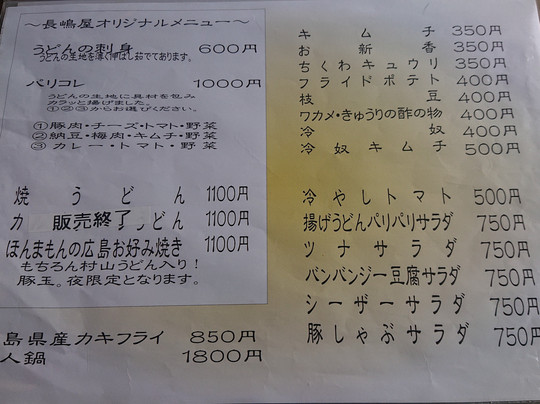 ～長嶋屋オリジナルメニュー～
うどんの刺身 600円
うどんの生地を薄く伸ばし茹でてあります。
パリコレ 1000円
うどんの生地に具材を包み
カラッと揚げました。
①②③からお選びください。
①豚肉・チーズ・トマト・野菜
②納豆・梅肉・キムチ・野菜
③カレー・トマト・野菜
焼うどん 1100円
カ 販売終了 どん 1100円
ほんまもんの広島お好み焼き 1100円
もちろん村山うどん入り！
豚玉。夜限定となります。
島県産カキフライ 850円
人鍋 1800円
キムチ 350円
お新香 350円
ちくわキュウリ 350円
フライドポテト 400円
枝豆 400円
ワカメ・きゅうりの酢の物 400円
冷奴 400円
冷奴キムチ 500円
冷やしトマト 500円
揚げうどんパリパリサラダ 750円
ツナサラダ 750円
バンバンジー豆腐サラダ 750円
シーザーサラダ 750円
豚しゃぶサラダ 750円